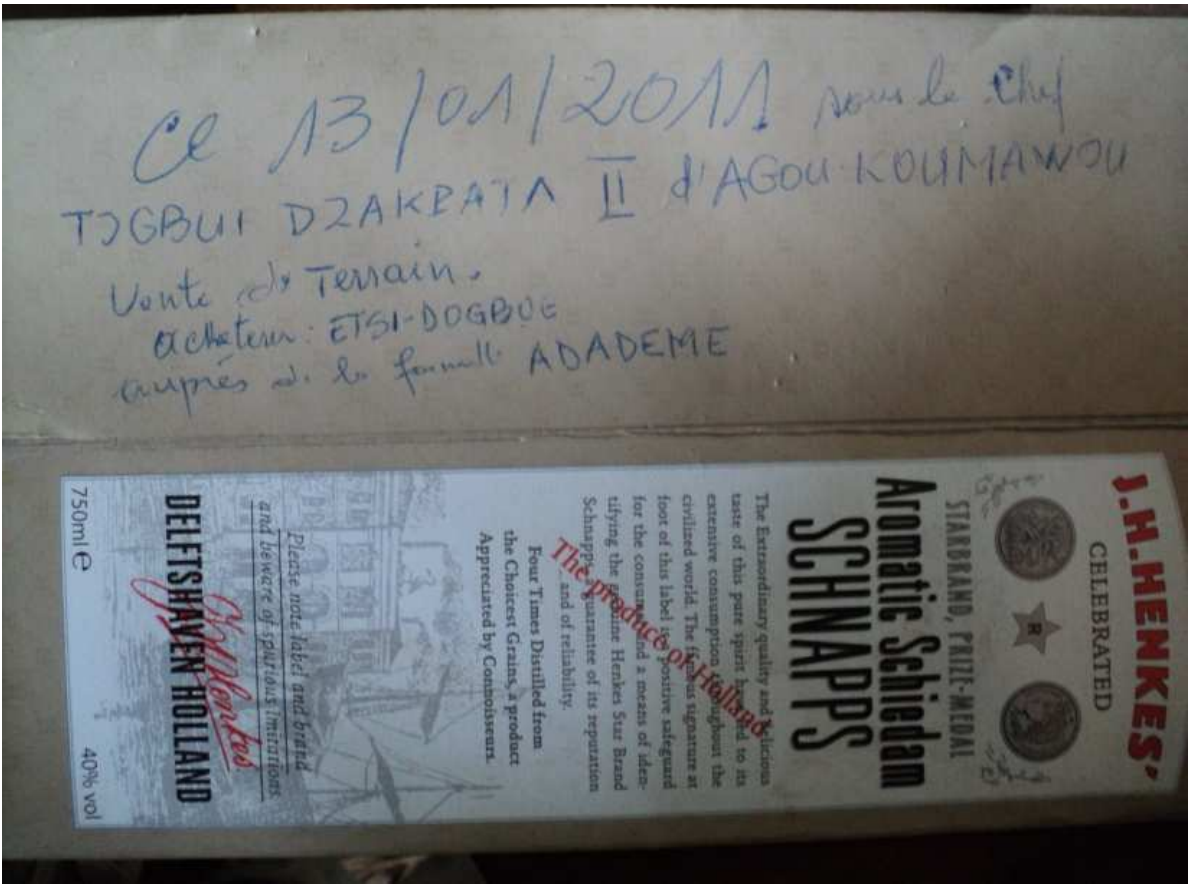 Ce 13/01/2011 sous le Chef
TOGBUI DZAKPATA II d'AGOU-KOUMAWOU
Vente de Terrain.
acheteur: ETSI-DOGBUE
auprès de la famille ADADEME
J.H.HENKES'
CELEBRATED
R
STARBRAND, PRIZE-MEDAL
Aromatic Schiedam
SCHNAPPS
The Extraordinary quality and delicious
taste of this pure spirit has led to its
extensive consumption throughout the
civilized world. The famous signature at
foot of this label is a positive safeguard
for the consumer and a means of iden-
tifying the genuine Henkes Star Brand
Schnapps, a guarantee of its reputation
and of reliability.
The produce of Holland
Four Times Distilled from
the Choicest Grains, a product
Appreciated by Connoisseurs.
Please note label and brand
and beware of spurious imitations
JHHenkes
DELFTSHAVEN HOLLAND
750ml e 40% vol